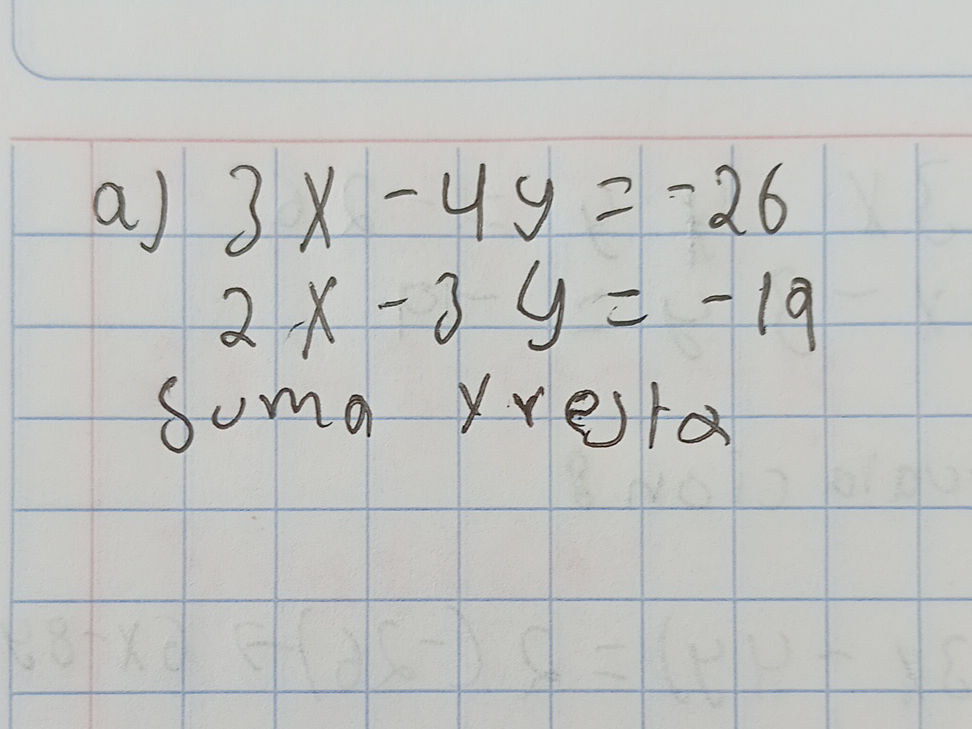 a) 3x - 4y = -26
2x - 3y = -19
Suma y resta